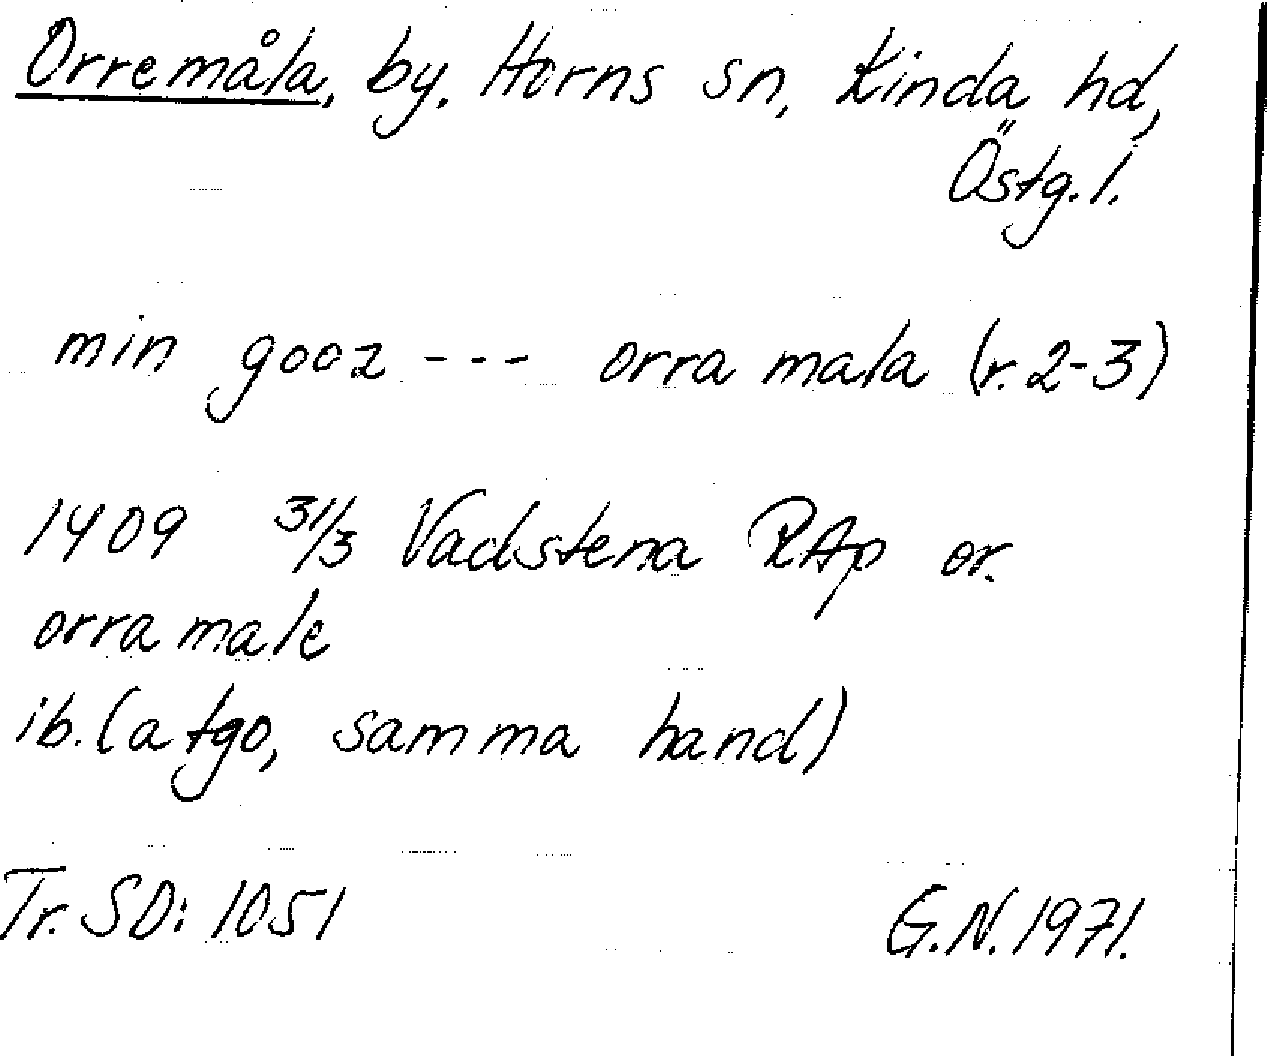 Orremåla, by. Horns sn, Kinda hd,
Östg. l.
min gooz --- orra mala (r. 2-3)
1409 31/3 Vadstena RAp or.
orra male
ib. (a tgo, samma hand)
Tr. SD: 1051 G.N. 1971.